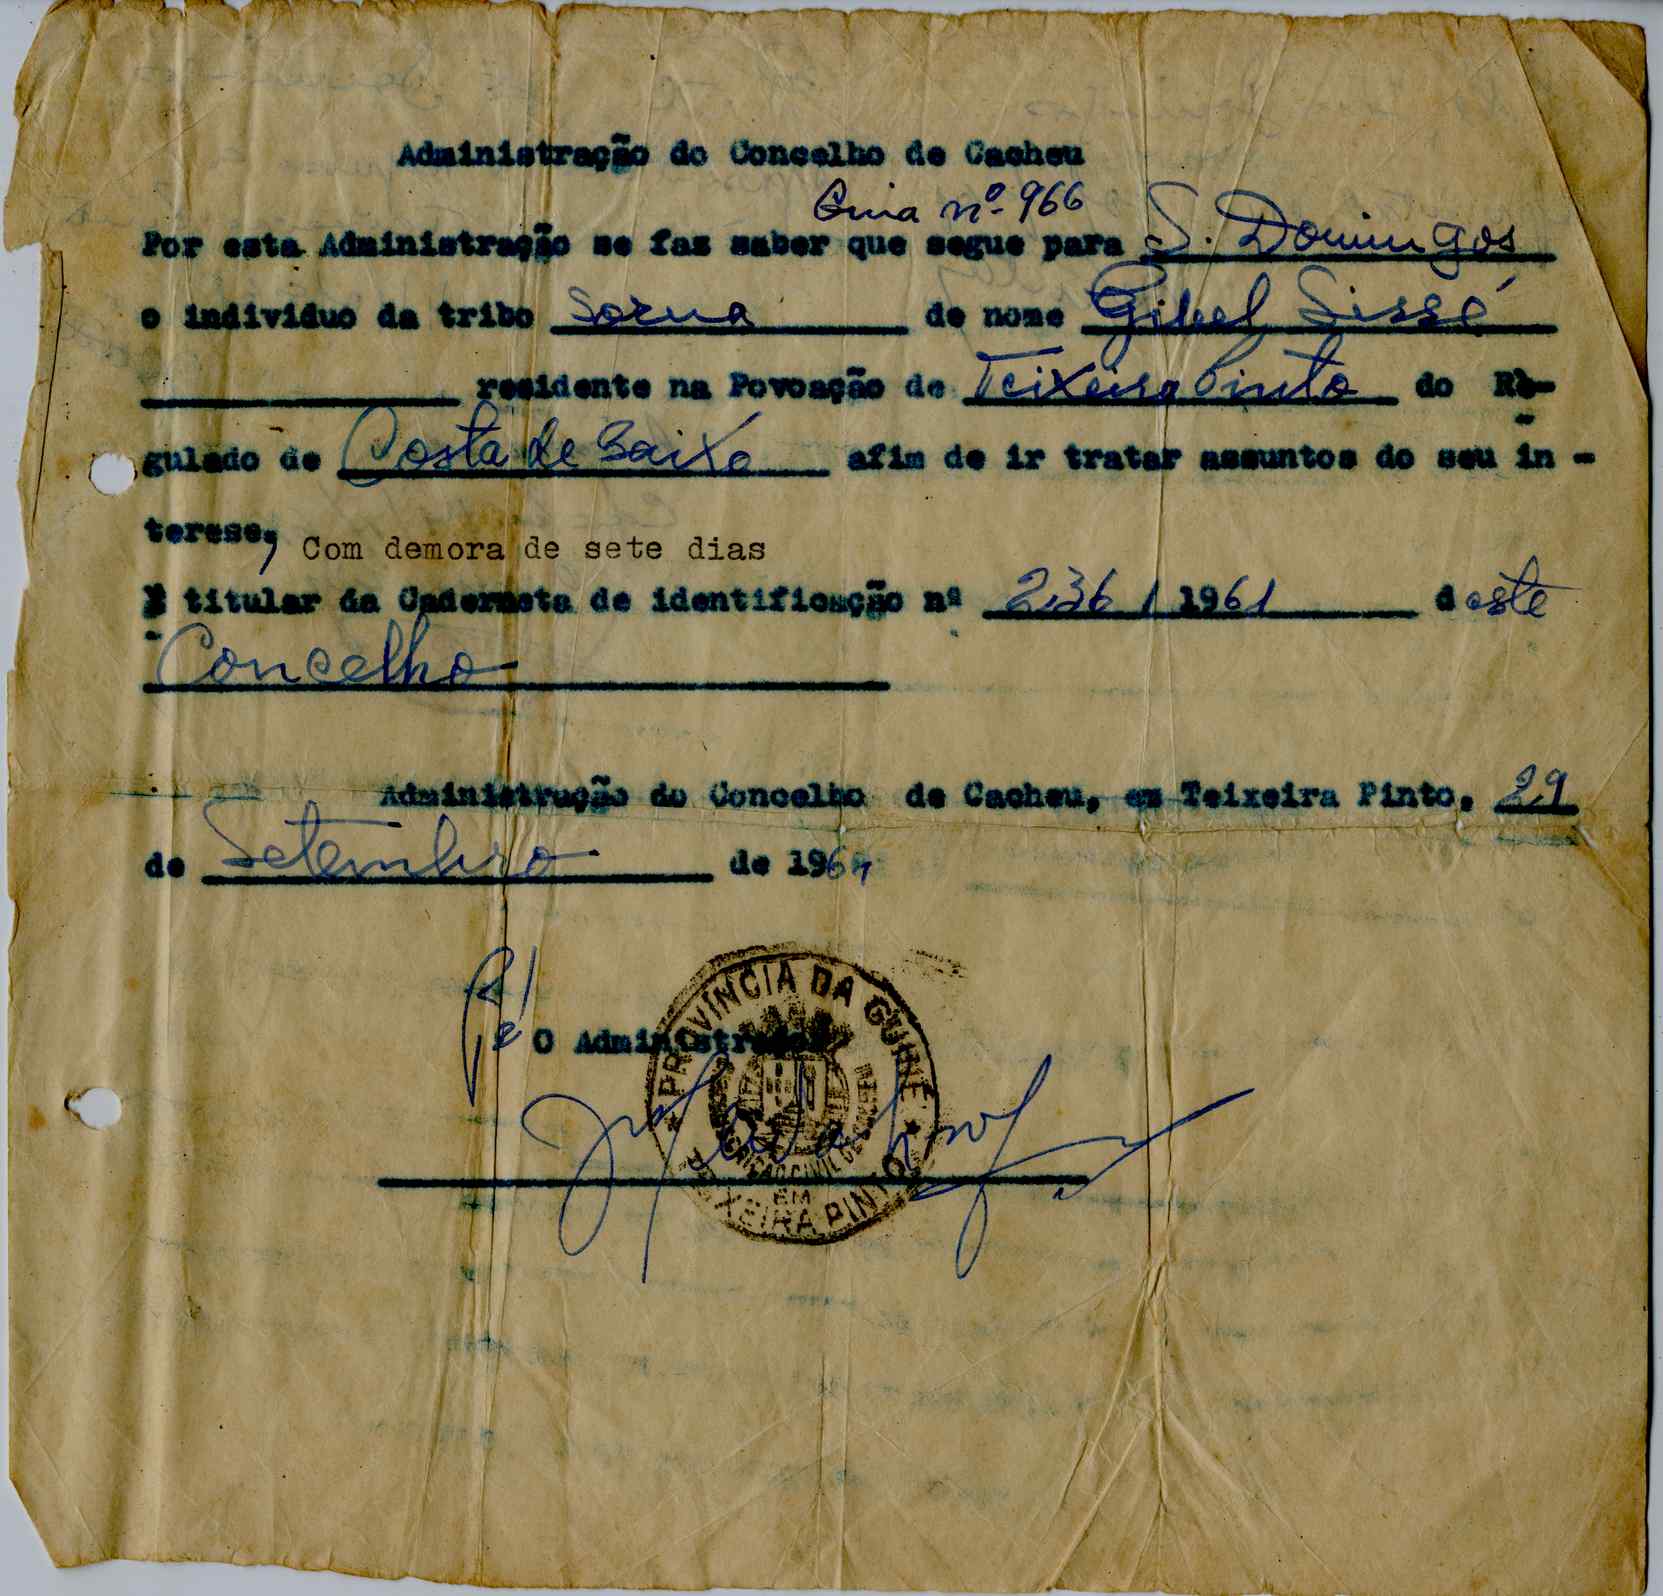 Administração do Concelho de Cacheu
Guia nº 966
Por esta Administração se faz saber que segue para S. Domingos
o individuo da tribo Sorua de nome Gibel Sissé
residente na Povoação de Teixeira Pinto do Rè-
gulado de Costa de Baixo afim de ir tratar assuntos do seu in -
terese, Com demora de sete dias
É titular da Caderneta de identificação nº 236 / 1961 deste
Concelho
Administração do Concelho de Cacheu, em Teixeira Pinto, 29
de Setembro de 196
O Administrador
PROVÍNCIA DA GUINÉ
EM
TEIXEIRA PINTO